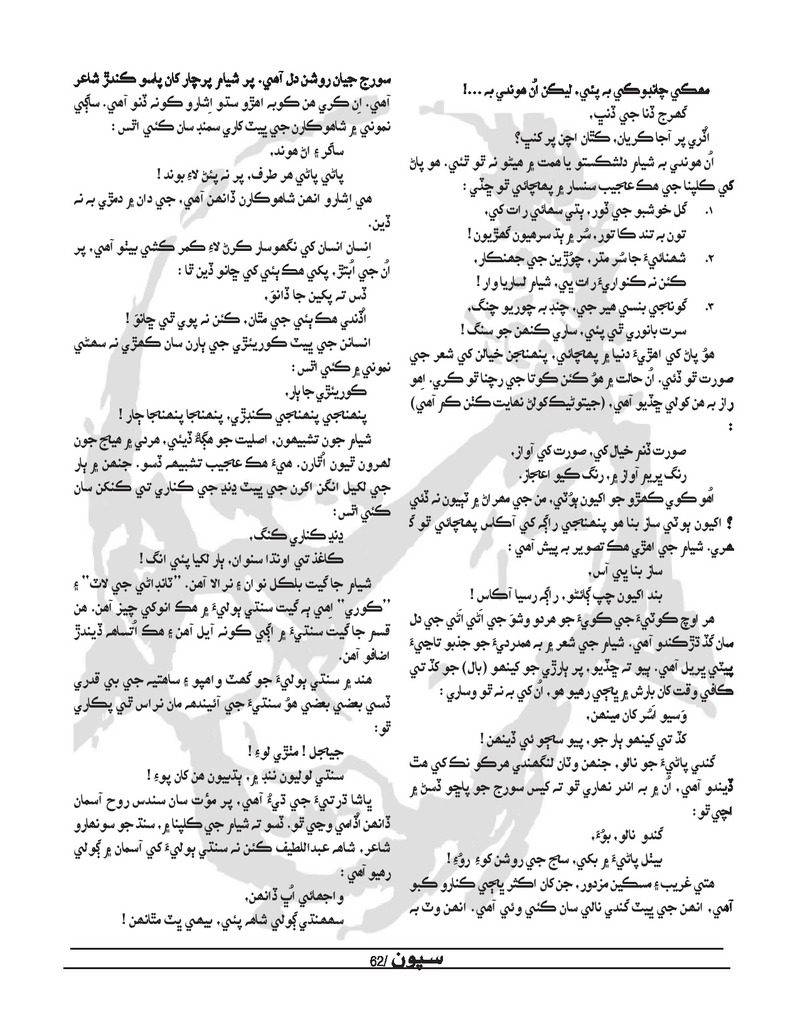 مهڪي چانبوڪي به پئي، ليڪن اُن هوندي به ...!
گهرج ڏنا جي ڏنڀ،
اڏري پر آجا ڪريان، ڪٿان اچن پر ڪنڀ؟
اُن هوندي به شيام دلشڪستو يا همت ۾ هيٺو نه ٿو ٿئي. هو پاڻ
کي ڪلپنا جي هڪ عجيب سنسار ۾ پهچائي ٿو ڇڏي :
۱. گل خوشبو جي ڏور، ٻٽي سهائي رات کي،
تون به تند کا تور، سُر ۾ ٻڌ سرهيون گهڙيون !
۲. شهنائيءَ جا سُر مٿر، چوڙين جي جهنڪار،
ڪئن نه ڪنواريءَ رات ڀي، شيام لساريا وار !
۳. گونائجي بنسي هير جي، چنڊ به چوريو چنگ،
سرت بانوري ٿي پئي، ساري ڪنهن جو سنگ !
هوُ پاڻ کي اهڙيءَ دنيا ۾ پهچائي، پنهنجن خيالن کي شعر جي
صورت ٿو ڏئي. اُن حالت ۾ هوُ ڪئن ڪوتا جي رچنا ٿو ڪري. اِهو
راز به هن کولي ڇڏيو آهي، (جيتوڻيڪ کولڻ نهايت ڪٺن ڪم آهي)
:
صورت ڏنم خيال کي، صورت کي آواز،
رنگ ڀريم آواز ۾، رنگ ڪيو اعجاز.
اُهو ڪوي ڪهڙو جو اکيون ٻوُٽي، من جي مهراڻ ۾ ٽٻيون نه ڏئي
؟ اکيون ٻوٽي ساز بنا هو پنهنجي راڳ کي آڪاس پهچائي ٿو ڪ
هري. شيام جي اهڙي هڪ تصوير به پيش آهي :
ساز بنا ڀي آس،
بند اکيون چپ ڳائڻو، راڳ رسيا آڪاس !
هر اوچ ڪوٽيءَ جي ڪويءَ جو هردو وشوَ جي اڻي اڻي جي دل
سان گڏ ڌڙڪندو آهي. شيام جي شعر ۾ به همدرديءَ جو جذبو تاجيءَ
پيٽي ڀريل آهي. ٻيو ته ڇڏيو، پر ٻارڙي جو کينهو (بال) جو کڏ تي
ڪافي وقت کان بارش ۾ ڀڄي رهيو هو، اُن کي به نه ٿو وساري :
وَسيو اَسُر کان مينهن،
کڏ تي کينهو ٻار جو، پيو سڄو ئي ڏينهن !
گندي پاڻيءَ جو نالو، جنهن وٽان لنگهندي هرڪو نڪ کي هٿ
ڏيندو آهي، اُن ۾ به اندر نهاري ٿو ته ڪيس سورج جو پاڇو ڏسڻ ۾
اچي ٿو :
گندو نالو، بوُءَ،
بيٺل پاڻيءَ ۾ بکي، سج جي روشن ڪوءِ روُءِ !
هتي غريب ۽ مسڪين مزدور، جن کان اڪثر ڀڄي ڪنارو ڪبو
آهي، انهن جي ڀيٽ گندي نالي سان ڪئي وئي آهي. انهن وٽ به
سورج جيان روشن دل آهي. پر شيام پرچار کان پاسو ڪندڙ شاعر
آهي. اِن ڪري هن ڪوبه اهڙو ستو اِشارو ڪونه ڏنو آهي. ساڳي
نموني ۾ شاهوڪارن جي ڀيٽ کاري سمنڊ سان ڪئي اٿس :
ساگر ۽ اڻ هوند،
پاڻي پاڻي هر طرف، پر نه پئڻ لاءِ بوند !
هي اِشارو انهن شاهوڪارن ڏانهن آهي، جي دان ۾ دمڙي به نه
ڏين.
اِنسان انسان کي نگهوسار ڪرڻ لاءِ ڪمر ڪشي بيٺو آهي، پر
اُن جي اُبتڙ، پکي هڪ ٻئي کي ڇانوَ ڏين ٿا :
ڏس ته پکين جا ڏانوَ،
اڏندي هڪ ٻئي جي مٿان، ڪئن نه پوي ٿي ڇانوَ !
انسانن جي ڀيٽ ڪوريئڙي جي ٻارن سان ڪهڙي نه سهڻي
نموني ۾ ڪئي اٿس :
ڪوريئڙي جا ٻار،
پنهنجي پنهنجي ڪنبڙي، پنهنجا پنهنجا ڄار !
شيام جون تشبيهون، اصليت جو مڳهُ ڏيئي، هردي ۾ هيڄ جون
لهرون ٿيون اُٿارن. هيءَ هڪ عجيب تشبيهہ ڏسو. جنهن ۾ ٻار
جي لکيل انگن اکرن جي ڀيٽ ڍنڍ جي ڪناري تي ڪنگن سان
ڪئي اٿس :
ڍنڍ ڪناري ڪنگ،
ڪاغذ تي اونڌا سنوان، ٻار لکيا پئي انگ !
شيام جا گيت بلڪل نوان ۽ نرالا آهن. ’’ٽانڊاڻي جي لاٽ‘‘ ۽
’’ڪوري‘‘ اِهي ٻه گيت سنڌي ٻوليءَ ۾ هڪ انوکي چيز آهن. هن
قسم جا گيت سنڌيءَ ۾ اڳي ڪونه آيل آهن ۽ هڪ اُتساهہ ڏيندڙ
اضافو آهن.
هند ۾ سنڌي ٻوليءَ جو گهٽ واهپو ۽ ساهتيہ جي بي قدري
ڏسي بعضي بعضي هوُ سنڌيءَ جي آئيندهہ مان نراس ٿي پڪاري
ٿو :
جيجل ! مٺڙي لوءِ !
سنڌي لوليون ننڊ ۾، ٻڌبيون هن کان پوءِ !
ڀاشا ڌرتيءَ جي ڌيءُ آهي، پر موُت سان سندس روح آسمان
ڏانهن اُڏامي وڃي ٿو. ڏسو ته شيام جي ڪلپنا ۾، سنڌ جو سونهارو
شاعر، شاهہ عبداللطيف ڪئن نه سنڌي ٻوليءَ کي آسمان ۾ ڳولي
رهيو آهي :
واجهائي اُڀ ڏانهن،
سهہنڌي ڳولي شاهہ پئي، بيهي ڀٽ مٿانهن !
سپون /62